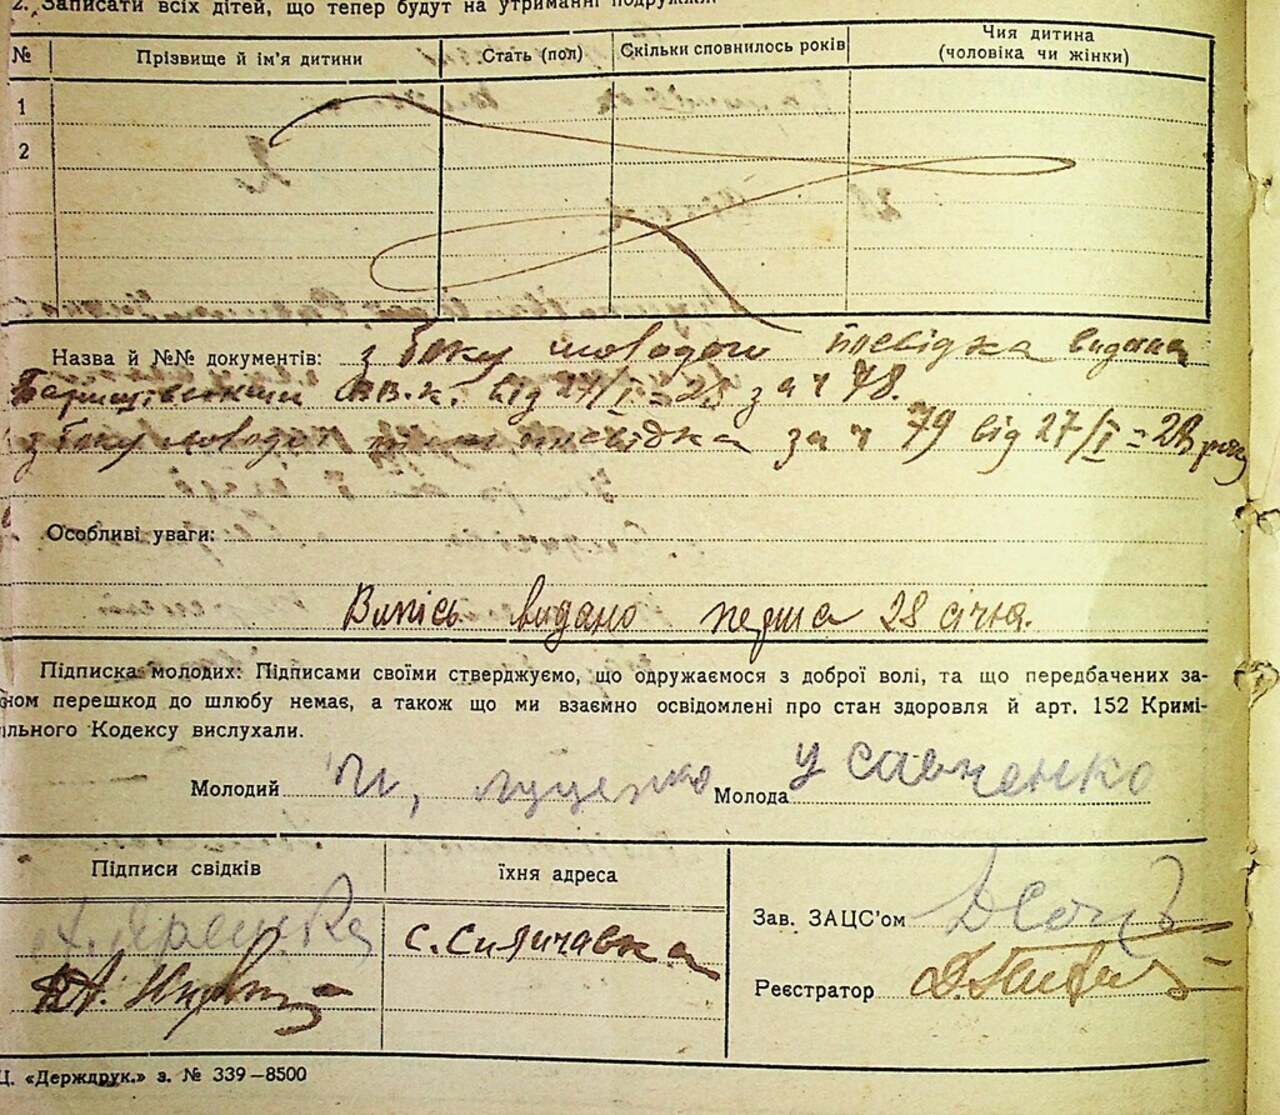 2. Записати всіх дітей, що тепер будут на утриманні подружжя.
№ Прізвище й ім'я дитини Стать (пол) Скільки сповнилось років Чия дитина (чоловіка чи жінки)
1
2
Назва й №№ документів: з боку молодого посвідка видана
від 27/I = 28 за ч 78.
з боку молодої посвідка за ч 79 від 27/I = 28 року
Особливі уваги:
Випісь видано перша 28 січня.
Підписка молодих: Підписами своїми стверджуємо, що одружаємося з доброї волі, та що передбачених за-
ном перешкод до шлюбу немає, а також що ми взаємно освідомлені про стан здоровля й арт. 152 Кримі-
льного Кодексу вислухали.
Молодий Луценко Молода У Савченко
Підписи свідків їхня адреса
Зав. ЗАЦС'ом
с. Силичавка
Реєстратор
Ц. «Держдрук.» з. № 339—8500